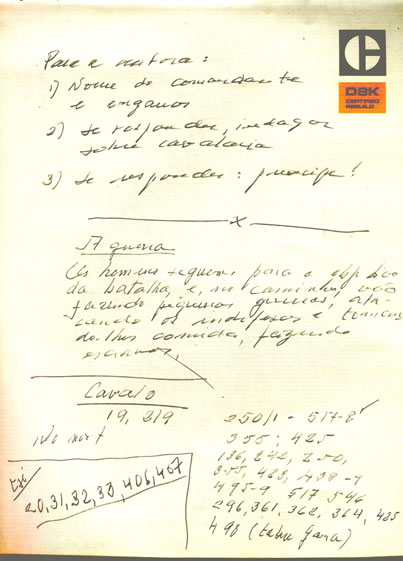 DBK
CERTIFIED
REBUILD
Para a autora:
1) Nome do comandante
e enganos
2) Se responder, indagar
sobre cavalaria
3) Se responder:
x
A guerra
Os homens seguem para o objetivo
da batalha, e, no caminho, vão
fazendo pequenas guerras, ata-
cando os indefesos e tomando-
lhes comida, fazendo
escravos.
Cavalo
19, 319
20, 31, 32, 33, 406, 407
250/1 - 517-8
355; 425
136, 242, 250,
355, 423, 438-9
495-9 517 546
296, 361, 362, 364, 425
498